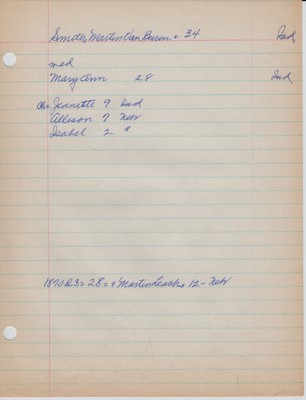 Smith, Martin Van Buren - 34 Ind
md
Mary Ann 28 Ind
Ch - Jeanette 9 Ind
Allison 7 Nebr
Isabel 2 "
1870 23 = 28 = Martin Leach 12 - Nebr